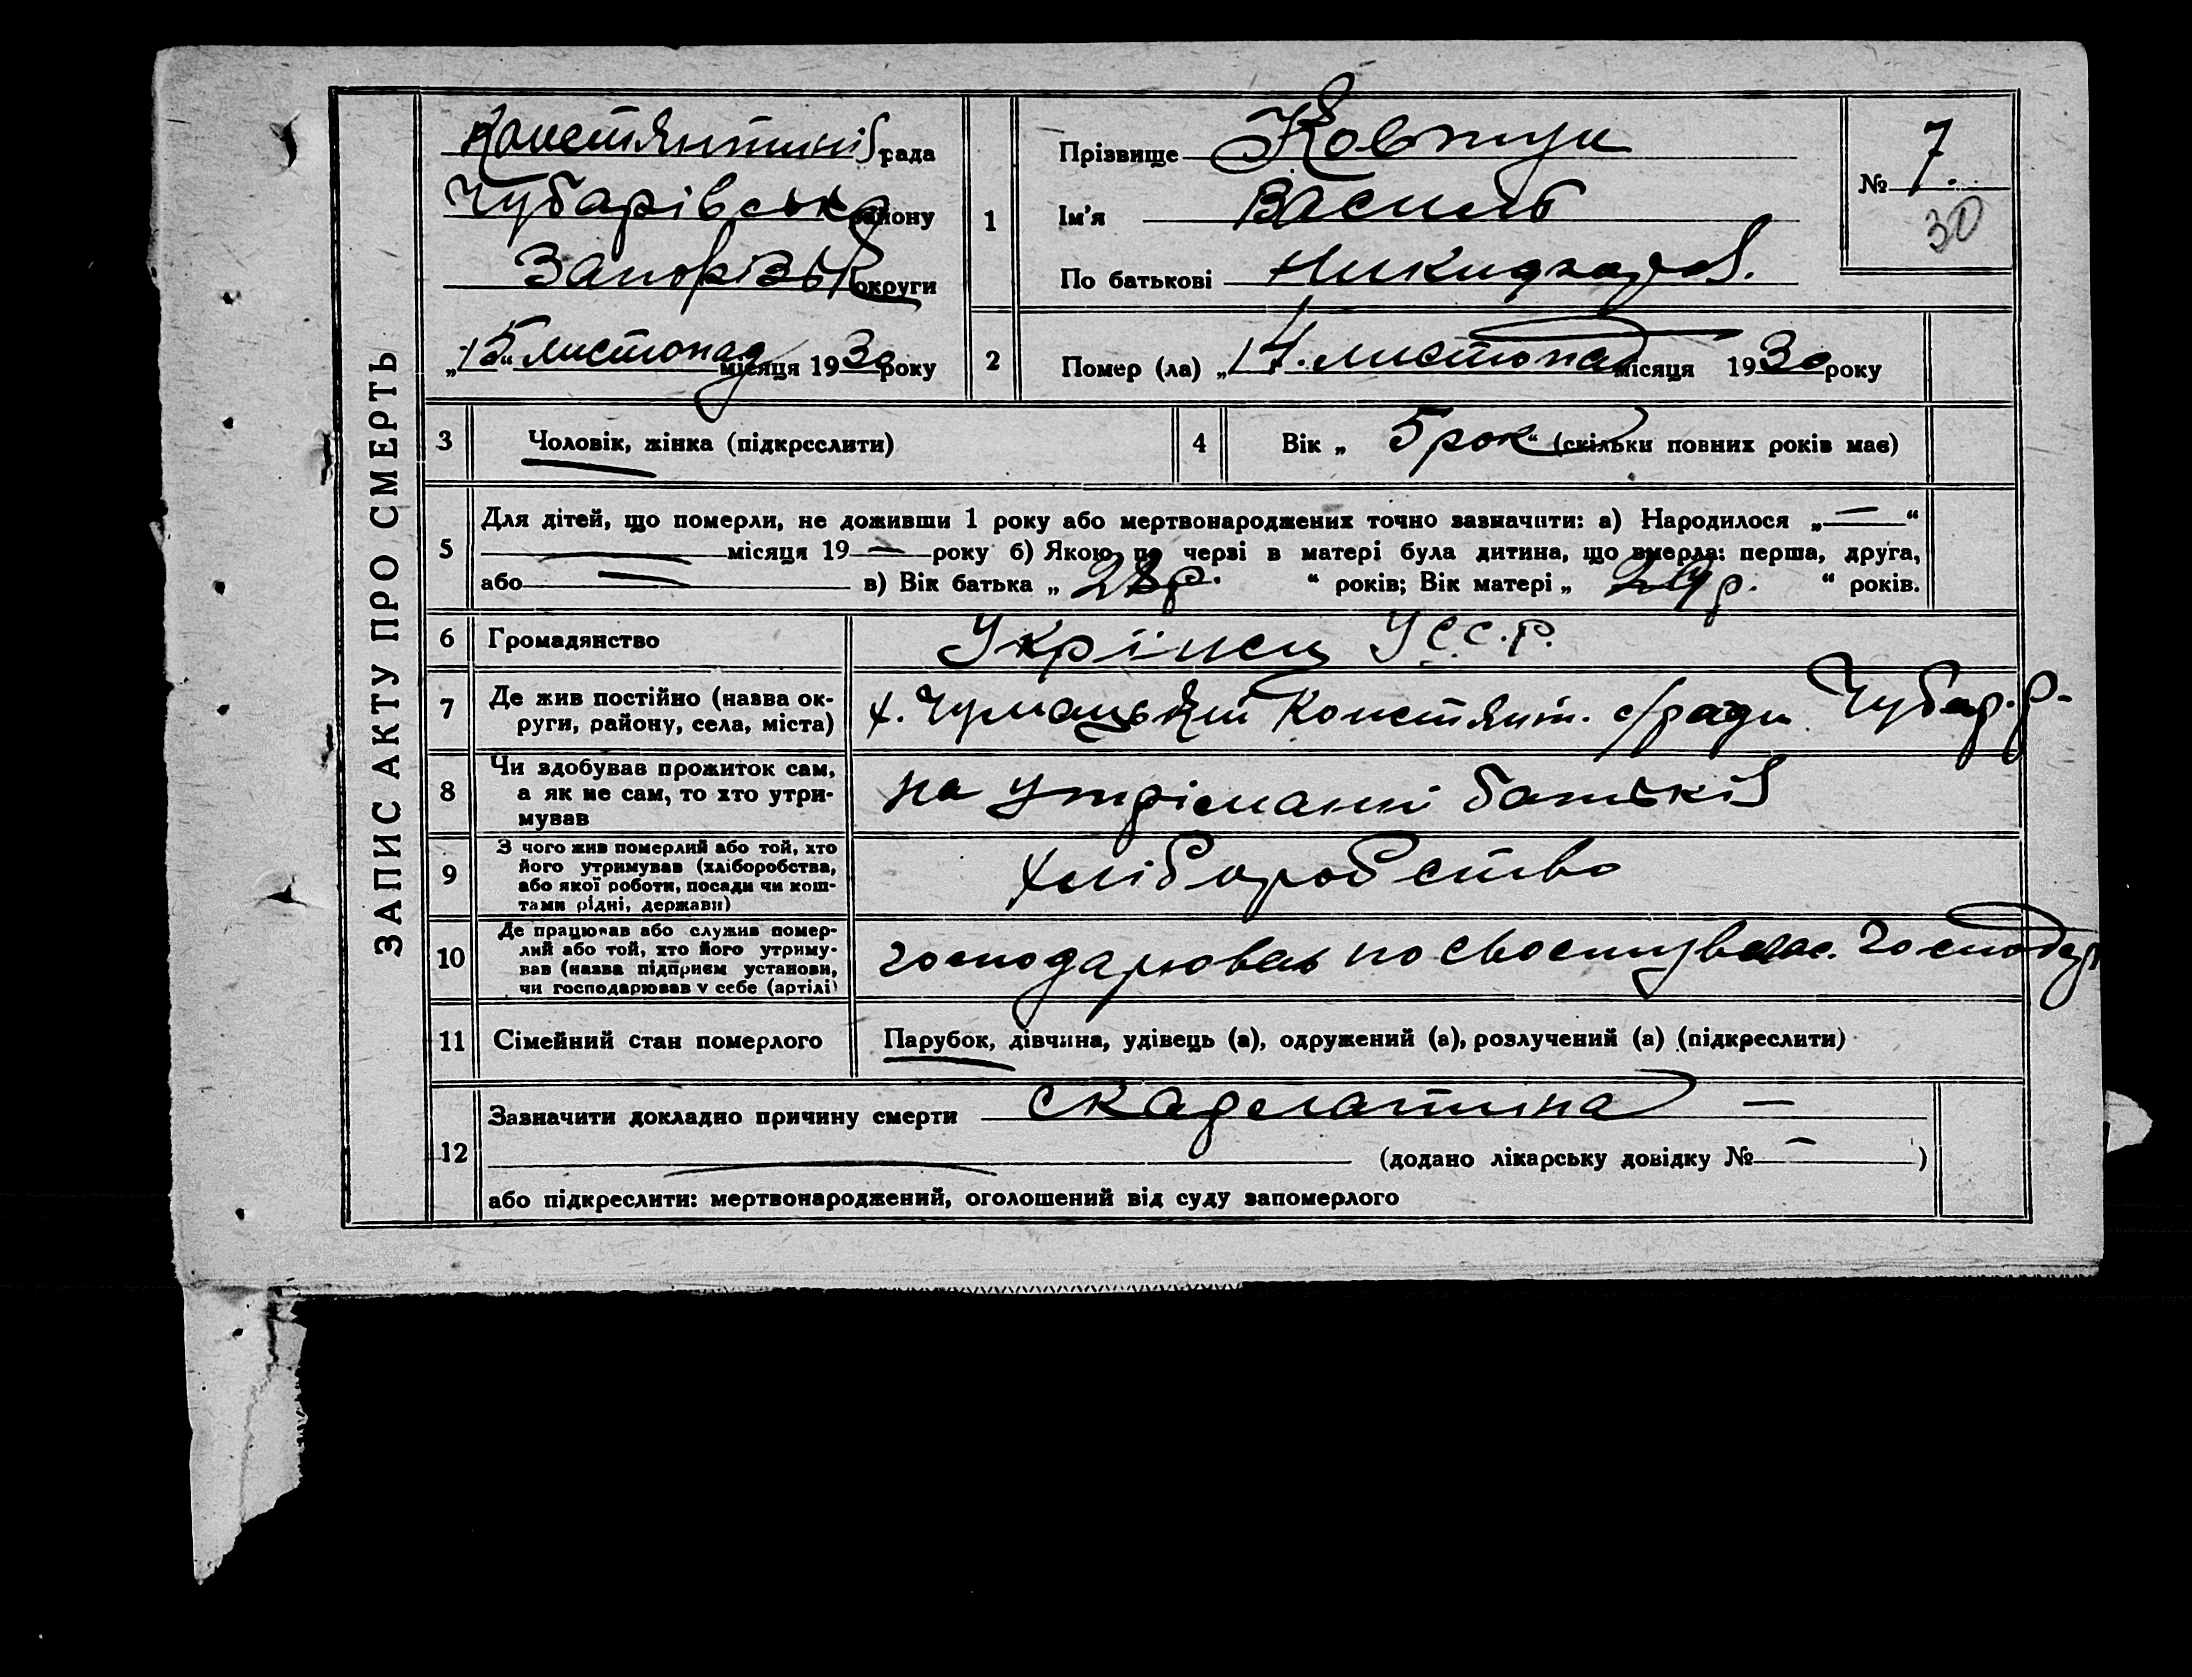 ЗАПИС АКТУ ПРО СМЕРТЬ
Констянтинів рада
Чубарівськ району
Запорізьк округи
„15“ листопад місяця 1930 року
1
Прізвище Ковтун
Ім'я Василь
По батькові
№ 7.
30
2
Помер (ла) „14. листопад місяця 1930 року
3
Чоловік, жінка (підкреслити)
4
Вік „ 5 рок “ (скільки повних років має)
5
Для дітей, що померли, не доживши 1 року або мертвонароджених точно зазначити: а) Народилося „—“
— місяця 19— року б) Якою по черзі в матері була дитина, що вмерла: перша, друга,
або — в) Вік батька „ 28 р. “ років; Вік матері „ р. “ років.
6
Громадянство
Укрїнец У.С.С.Р.
7
Де жив постійно (назва ок-
руги, району, села, міста)
х. Чумацький Констянт. с/ради Чубар. р-
8
Чи здобував прожиток сам,
а як не сам, то хто утри-
мував
на утріманні батьків
9
З чого жив померлий або той, хто
його утримував (хліборобства,
або якої роботи, посади чи кош-
тами рідні, держави)
хліборобство
10
Де працював або служив помер-
лий або той, хто його утриму-
вав (назва підприєм установи,
чи господарював у себе (артілі)
господарював по своєму влас. господар
11
Сімейний стан померлого
Парубок, дівчина, удівець (а), одружений (а), розлучений (а) (підкреслити)
12
Зазначити докладно причину смерти скарлатина —
(додано лікарську довідку № — )
або підкреслити: мертвонароджений, оголошений від суду запомерлого